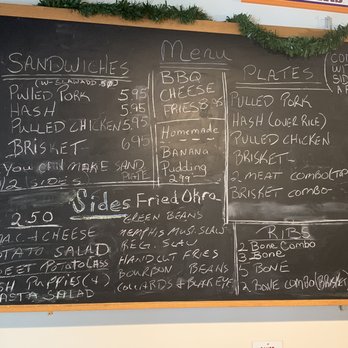 Menu
SANDWICHES
(W-SLAW ADD .50)
PULLED PORK 5.95
HASH 5.95
PULLED CHICKEN 5.95
BRISKET 6.95
YOU CAN MAKE SAND
PLATE
2 SIDES
BBQ
CHEESE
FRIES 8.95
Homemade
BANANA
Pudding
2.99
PLATES
PULLED PORK
HASH (OVER RICE)
PULLED CHICKEN
BRISKET
2 MEAT COMBO
BRISKET COMBO
COM
WITH
SID
Sides Fried Okra
2.50
MAC + CHEESE
POTATO SALAD
SWEET POTATO CASS
HUSH PUPPIES (4)
PASTA SALAD
GREEN BEANS
MEMPHIS MUS. SLAW
REG. SLAW
HAND CUT FRIES
BOURBON BEANS
COLLARDS & BLACKEYE
RIBS
2 BONE COMBO
3 BONE
5 BONE
2 BONE COMBO (BRISKET